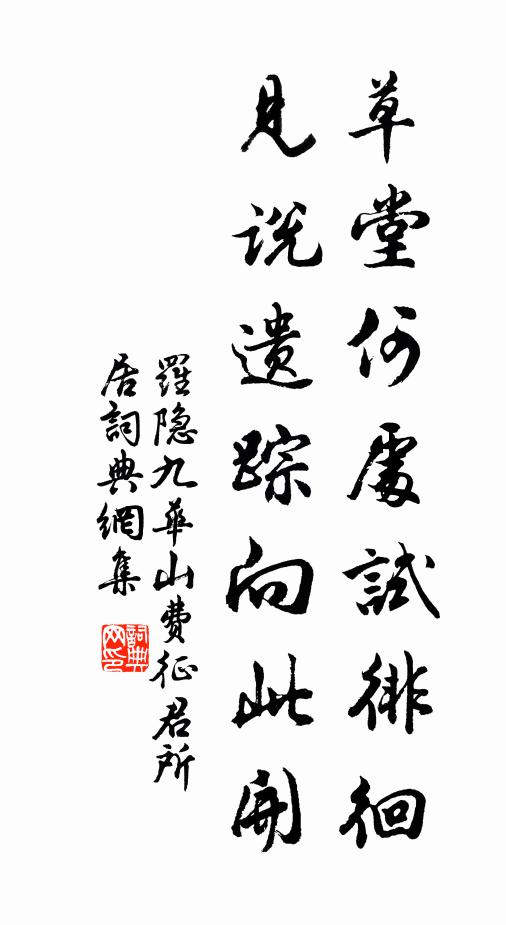 草堂何處試徘徊
見説遺踪向此開
羅隐九華山費征君所
居詞典網集
詞典
网印